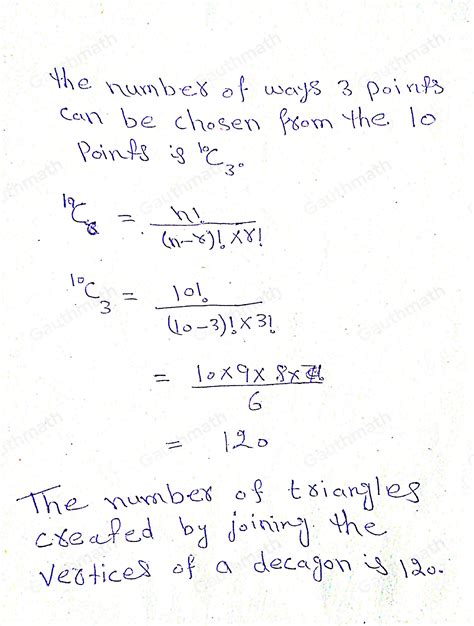 the number of ways 3 points
can be chosen from the 10
Points is ¹⁰C₃.
= n!
(n-r)! × r!
¹⁰C₃ = 10!
(10-3)! × 3!
= 10×9×8×
6
= 120
The number of triangles
created by joining the
vertices of a decagon is 120.
Gauthmath